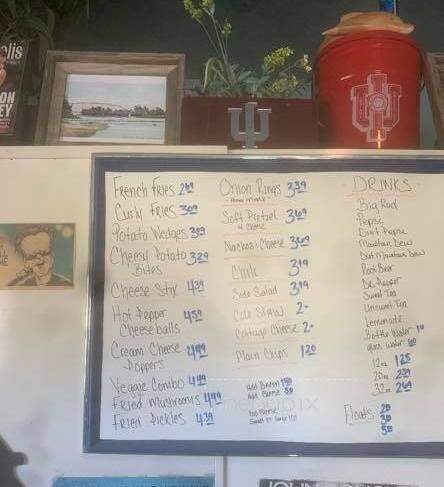 French Fries 2.69
Curly Fries 3.09
Potato Wedges 3.09
Cheesy Potato 3.29
Bites
Cheese Stix 4.39
Hot Pepper 4.59
Cheeseballs
Cream Cheese 4.49
Poppers
Veggie Combo 4.99
Fried Mushrooms 4.99
Fried Pickles 4.39
Onion Rings 3.39
Home Made
Soft Pretzel 3.69
& Cheese
Nachos & Cheese 3.69
Chili 3.19
Side Salad 3.19
Cole Slaw 2.-
Cottage Cheese 2.-
Plain Chips 1.20
add Bacon
add Cheese
DRINKS
Big Red
Pepsi
Diet Pepsi
Mountain Dew
Diet Mountain Dew
Root Beer
Dr. Pepper
Sweet Tea
Unsweet Tea
Lemonade
Bottle Water
glass water
12oz 1.25
20oz 2.39
32oz 2.69
Floats